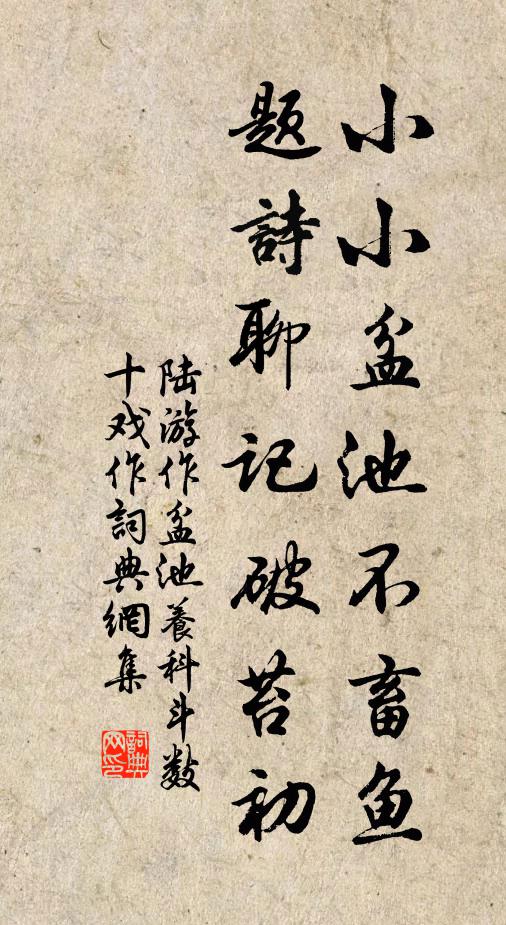 小小盆池不畜鱼
题詩聊记破苔初
陆游作盆池養科斗数
十戏作詞典網集
詞典
网印